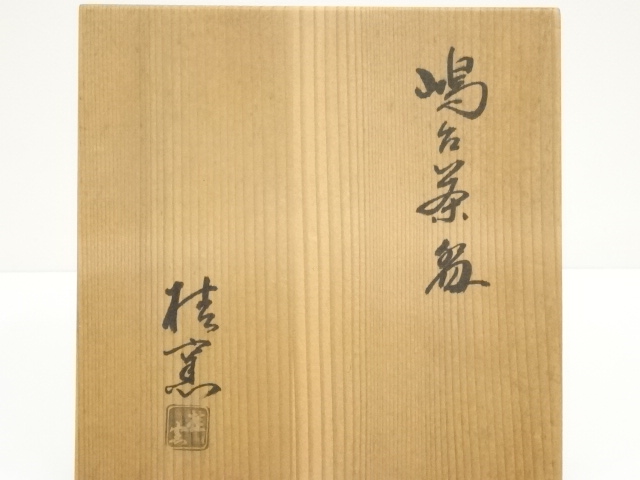 嶋台茶碗
桂窯